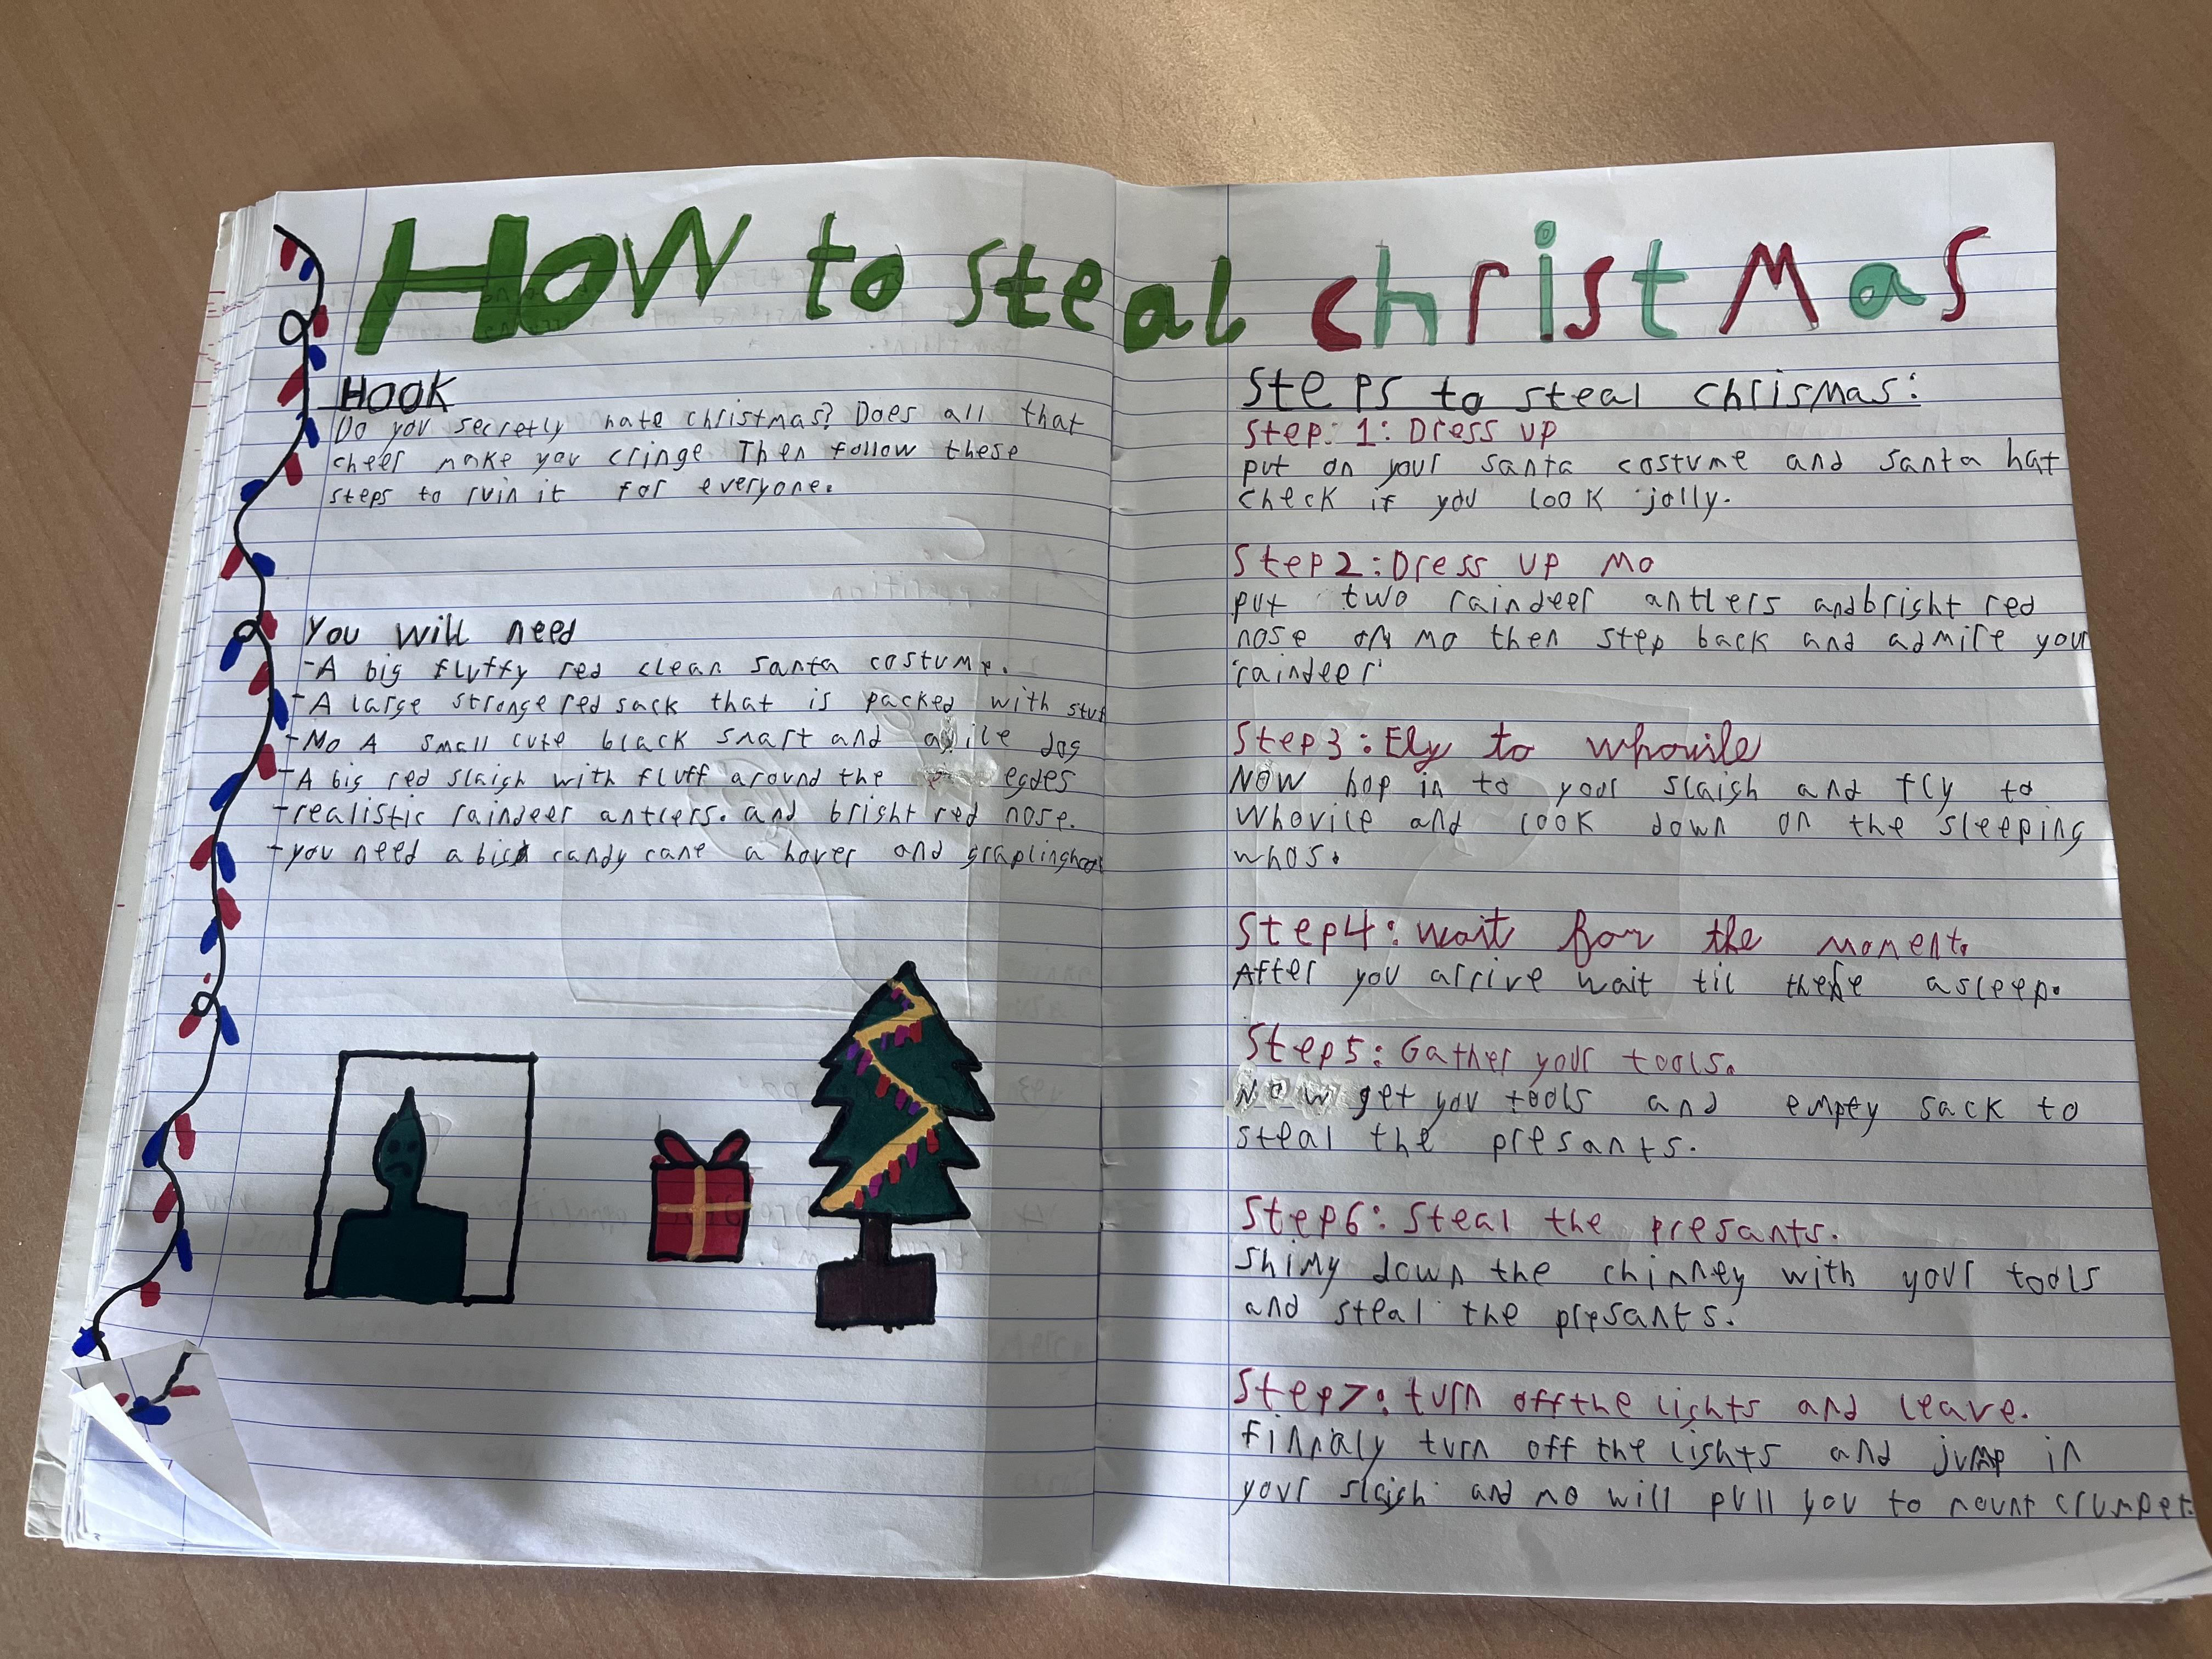 How to steal christmas
HOOK
Do you secretly hate christmas? Does all that
cheer make you cringe Then follow these
steps to ruin it for everyone.
You will need
-A big fluffy red clean santa costume.
-A large stronge red sack that is packed with stuf
-Mo A small cute black smart and agile dog
-A big red slaigh with fluff around the egdes
-realistic raindeer antlers. and bright red nose.
-you need a big candy cane a hover and graplinghook
Steps to steal chrismas:
Step: 1: Dress up
put on your santa costume and santa hat
check if you look jolly.
Step2: Dress up Mo
put two raindeer antlers andbright red
nose on Mo then step back and admire your
'raindeer'
Step3: Fly to whovile
Now hop in to your slaigh and fly to
Whovile and look down on the sleeping
whos.
Step4: wait for the moment.
After you arrive wait til there asleep.
Step5: Gather your tools.
Now get you tools and empty sack to
steal the presants.
Step6: Steal the presants.
Shimy down the chimney with your tools
and steal the presants.
Step7: turn offthe lights and leave.
finnaly turn off the lights and jump in
your slaigh and mo will pull you to mount crumpet.